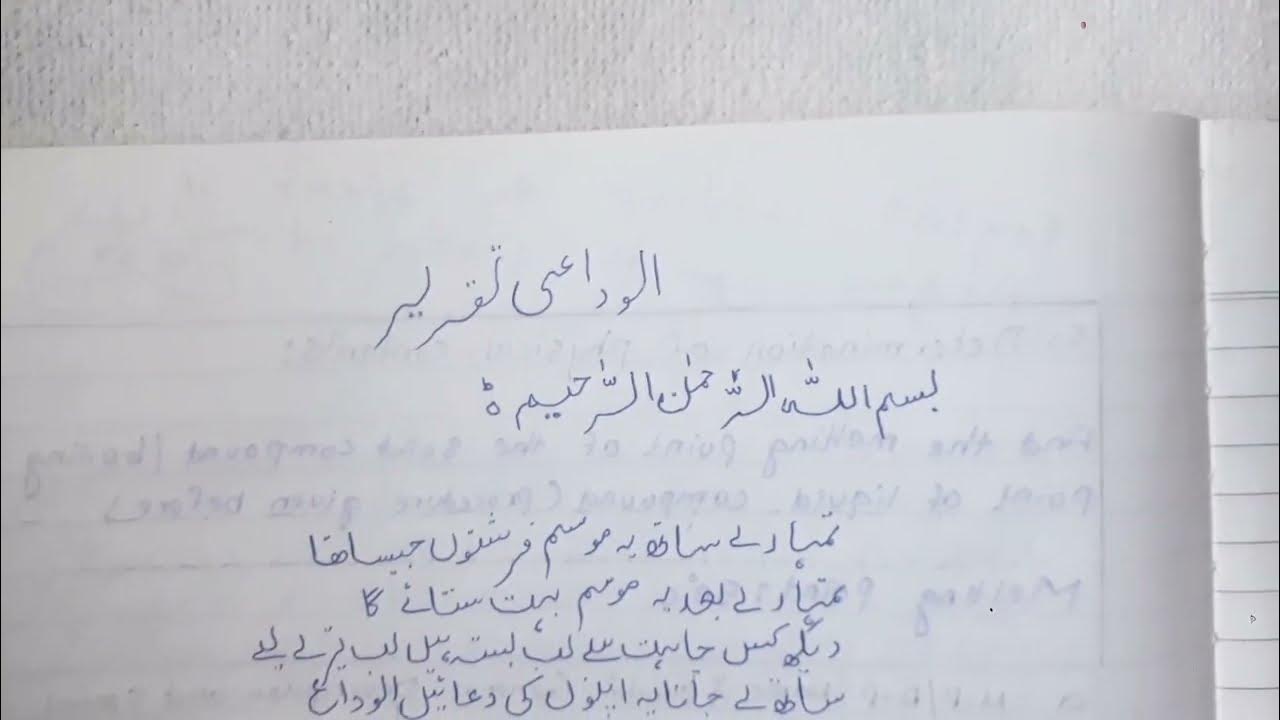 الوداعی تقریر
بسم اللہ الرّحمٰن الرّحیم ہ
تمہارے ساتھ یہ موسم فرشتوں جیسا تھا
تمہارے بعد یہ موسم بہت ستائے گا
دیکھ کس چاہت سے لب بستہ ہیں لب تیرے لیے
ساتھ لے جانا یہ اپنوں کی دعائیں الوداع